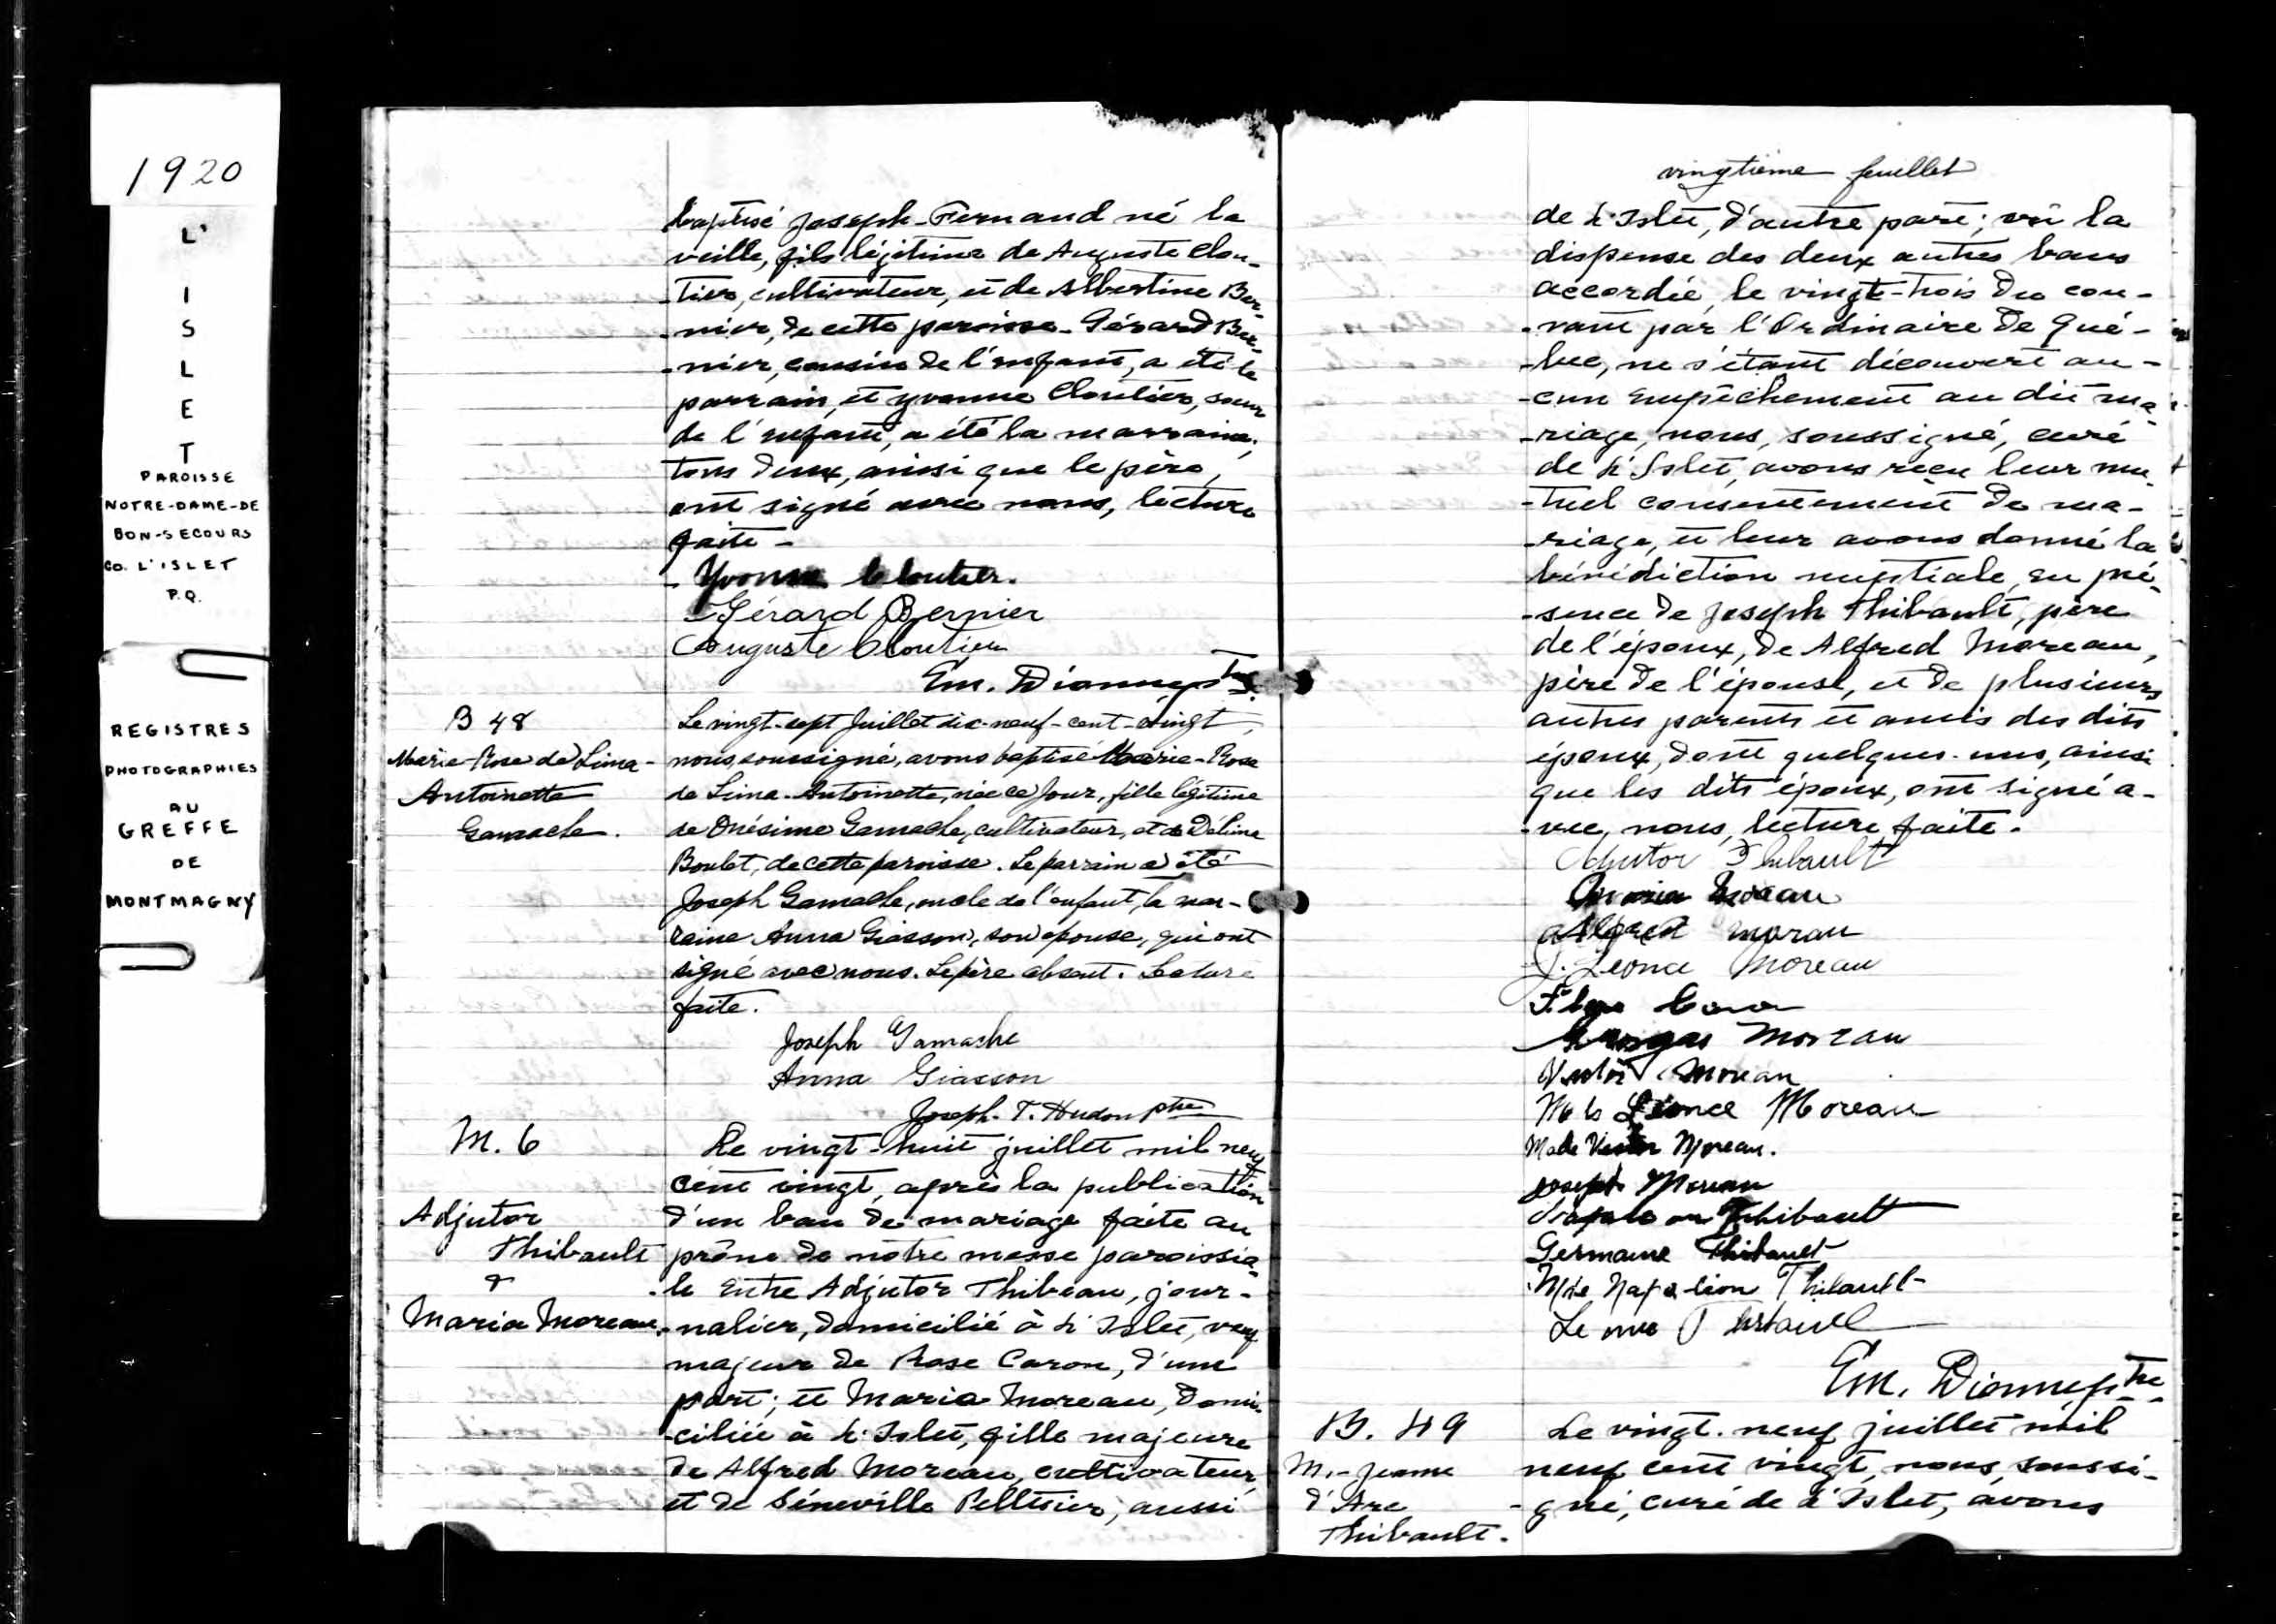 1920
L'
I
S
L
E
T
PAROISSE
NOTRE-DAME-DE
BON-SECOURS
CO. L'ISLET
P.Q.
REGISTRES
PHOTOGRAPHIES
AU
GREFFE
DE
MONTMAGNY
baptisé Joseph-Fernand né la
veille, fils légitime de Auguste Clou-
-tier, cultivateur, et de Albertine Ber-
-nier, de cette paroisse - Gérard Ber-
-nier, cousin de l'enfant, a été le
parrain, et Yvonne Cloutier, sœur
de l'enfant, a été la marraine,
tous deux, ainsi que le père,
ont signé avec nous, lecture
faite -
Yvonne Cloutier.
Gérard Bernier
Auguste Cloutier
Em. Dionne ptre
B 48
Marie-Rose de Lima-
Antoinette
Gamache.
Le vingt-sept Juillet dix-neuf-cent-vingt,
nous, soussigné, avons baptisé Marie-Rose
de Lima-Antoinette, née ce jour, fille légitime
de Onésime Gamache, cultivateur, et de Délima
Boulet, de cette paroisse. Le parrain a été
Joseph Gamache, oncle de l'enfant, la mar-
raine Anna Giasson, son épouse, qui ont
signé avec nous. Le père absent. Lecture
faite.
Joseph Gamache
Anna Giasson
Joseph. T. Hudon ptre
M. 6
Adjutor
Thibault
&
Maria Moreau
Le vingt-huit juillet mil neuf
cent vingt, après la publication
d'un ban de mariage faite au
prône de notre messe paroissia-
-le entre Adjutor Thibeau, jour-
-nalier, domicilié à L'Islet, veuf
majeur de Rose Caron, d'une
part; et Maria Moreau, domi-
-ciliée à L'Islet, fille majeure
de Alfred Moreau, cultivateur,
et de Séneville Pelletier, aussi
vingtième feuillet
de L'Islet, d'autre part; vu la
dispense des deux autres bans
accordée, le vingt-trois du cou-
-rant par l'Ordinaire de Qué-
-bec, ne s'étant découvert au-
-cun empêchement au dit ma-
-riage, nous, soussigné, curé
de L'Islet, avons reçu leur mu-
-tuel consentement de ma-
-riage, et leur avons donné la
bénédiction nuptiale, en pré-
-sence de Joseph Thibault, père
de l'époux, de Alfred Moreau,
père de l'épouse, et de plusieurs
autres parents et amis des dits
époux, dont quelques-uns, ainsi
que les dits époux, ont signé a-
-vec, nous, lecture faite.
Adjutor Thibault
Maria Moreau
Alfred Morau
J. Léonce Moreau
Moreau
Victor Moreau
Léonce Moreau
Made Victor Moreau.
Joseph Moreau
Napoleon Thibault
Germaine Thibault
Mde Napoleon Thibault
Em. Dionne ptre
B. 49
M.-Jeanne
d'Arc
Thibault.
Le vingt-neuf juillet mil
neuf cent vingt, nous, soussi-
-gné, curé de L'Islet, avons